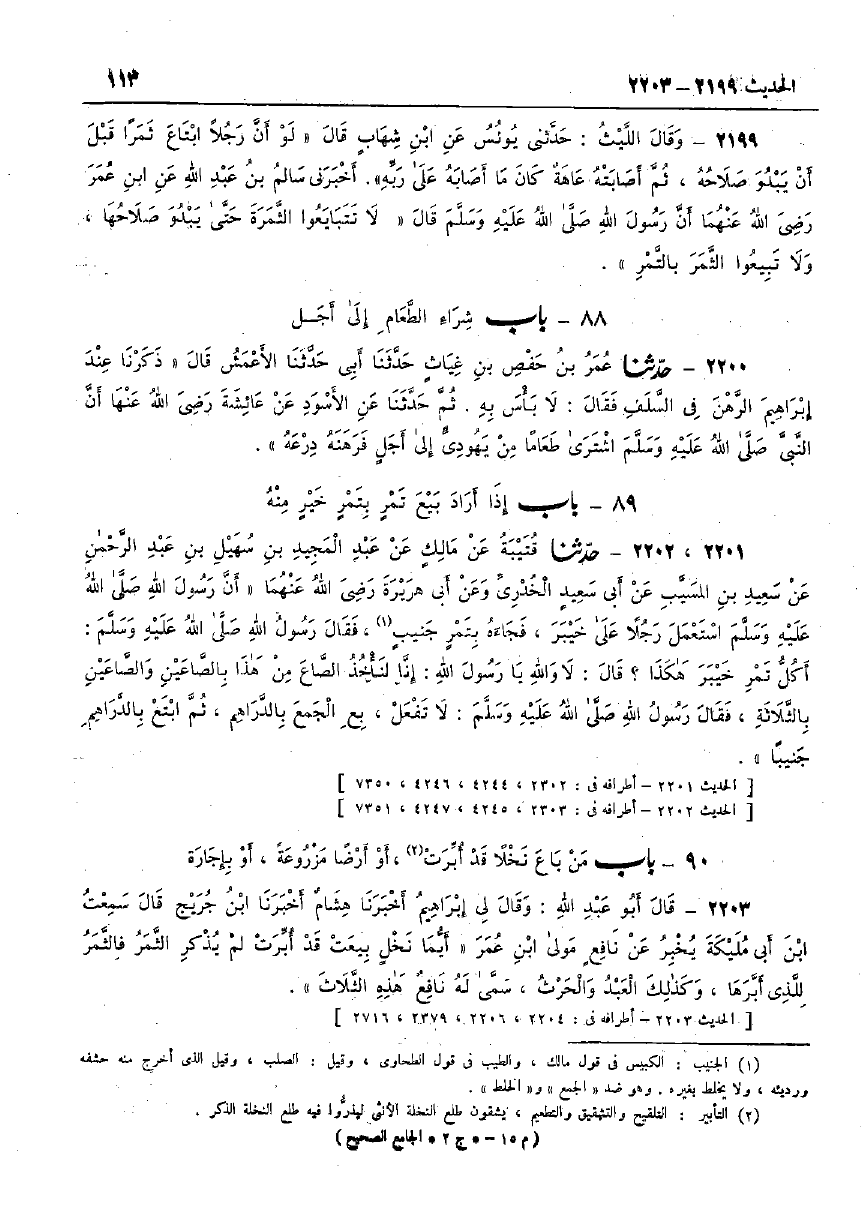 الحديث ٢١٩٩ – ٢٢٠٣
١١٣
٢١٩٩ – وَقَالَ اللَّيْثُ : حَدَّثَنِى يُونُسُ عَنِ ابْنِ شِهَابٍ قَالَ « لَوْ أَنَّ رَجُلاً ابْتَاعَ ثَمَرًا قَبْلَ
أَنْ يَبْدُوَ صَلَاحُهُ ، ثُمَّ أَصَابَتْهُ عَاهَةٌ كَانَ مَا أَصَابَهُ عَلَىٰ رَبِّهِ». أَخْبَرَنِى سَالِمُ بنُ عَبْدِ اللهِ عَنِ ابنِ عُمَرَ
رَضِىَ اللهُ عَنْهُمَا أَنَّ رَسُولَ اللهِ صَلَّىٰ اللهُ عَلَيْهِ وَسَلَّمَ قَالَ « لَا تَتَبَايَعُوا الثَّمَرَةَ حَتَّىٰ يَبْدُوَ صَلَاحُهَا ،
وَلَا تَبِيعُوا الثَّمَرَ بالتَّمْرِ » .
٨٨ – باب شِرَاءِ الطَّعَامِ إِلَىٰ أَجَلٍ
٢٢٠٠ – حدّثنا عُمَرُ بنُ حَفْصِ بنِ غِيَاثٍ حَدَّثَنَا أَبِى حَدَّثَنَا الأَعْمَشُ قَالَ « ذَكَرْنَا عِنْدَ
إِبْرَاهِيمَ الرَّهْنَ فِى السَّلَفِ فَقَالَ : لَا بَأْسَ بِهِ . ثُمَّ حَدَّثَنَا عَنِ الأَسْوَدِ عَنْ عَائِشَةَ رَضِىَ اللهُ عَنْهَا أَنَّ
النَّبِىَّ صَلَّىٰ اللهُ عَلَيْهِ وَسَلَّمَ اشْتَرَىٰ طَعَامًا مِنْ يَهُودِىٍّ إِلىٰ أَجَلٍ فَرَهَنَهُ دِرْعَهُ » .
٨٩ – باب إِذَا أَرَادَ بَيْعَ تَمْرٍ بِتَمْرٍ خَيْرٍ مِنْهُ
٢٢٠١ ، ٢٢٠٢ – حدّثنا قُتَيْبَةُ عَنْ مَالِكٍ عَنْ عَبْدِ الْمَجِيدِ بنِ سُهَيْلِ بنِ عَبْدِ الرَّحْمٰنِ
عَنْ سَعِيدِ بنِ المُسَيَّبِ عَنْ أَبِى سَعِيدٍ الْخُدْرِىِّ وَعَنْ أَبِى هرَيْرَةَ رَضِىَ اللهُ عَنْهُمَا « أَنَّ رَسُولَ اللهِ صَلَّىٰ اللهُ
عَلَيْهِ وَسَلَّمَ اسْتَعْمَلَ رَجُلًا عَلَىٰ خَيْبَرَ ، فَجَاءَهُ بِتَمْرٍ جَنِيبٍ(١) ، فَقَالَ رَسُولُ اللهِ صَلَّىٰ اللهُ عَلَيْهِ وَسَلَّمَ :
أَكُلُّ تَمْرِ خَيْبَرَ هَٰكَذَا ؟ قَالَ : لَا وَاللهِ يَا رَسُولَ اللهِ : إِنَّا لَنَأْخُذُ الصَّاعَ مِنْ هَٰذَا بِالصَّاعَيْنِ وَالصَّاعَيْنِ
بِالثَّلَاثَةِ ، فَقَالَ رَسُولُ اللهِ صَلَّىٰ اللهُ عَلَيْهِ وَسَلَّمَ : لَا تَفْعَلْ ، بِعِ الْجَمعَ بِالدَّرَاهِمِ ، ثُمَّ ابْتَعْ بِالدَّرَاهِمِ
جَنِيبًا » .
[ الحديث ٢٢٠١ – أطرافه فى : ٢٣٠٢ ، ٤٢٤٤ ، ٤٢٤٦ ، ٧٣٥٠ ]
[ الحديث ٢٢٠٢ – أطرافه فى : ٢٣٠٣ ، ٤٢٤٥ ، ٤٢٤٧ ، ٧٣٥١ ]
٩٠ – باب مَنْ بَاعَ نَخْلًا قَدْ أُبِّرَتْ(٢) ، أَوْ أَرْضًا مَزْرُوعَةً ، أَوْ بِإِجَارَة
٢٢٠٣ – قَالَ أَبُو عَبْدِ اللهِ : وَقَالَ لِى إِبْرَاهِيمُ أَخْبَرَنَا هِشَامٌ أَخْبَرَنَا ابْنُ جُرَيْجٍ قَالَ سَمِعْتُ
ابْنَ أَبِى مُلَيْكَةَ يُخْبِرُ عَنْ نَافِعٍ مَولىٰ ابْنِ عُمَرَ « أَيُّمَا نَخْلٍ بِيعَتْ قَدْ أُبِّرَتْ لَمْ يُذْكَرِ الثَّمَرُ فالثَّمَرُ
لِلَّذِى أَبَّرَهَا ، وَكَذٰلِكَ الْعَبْدُ وَالْحَرْثُ ، سَمَّىٰ لَهُ نَافِعٌ هَٰذِهِ الثَّلَاثَ » .
[ الحديث ٢٢٠٣ – أطرافه فى : ٢٢٠٤ ، ٢٢٠٦ ، ٢٣٧٩ ، ٢٧١٦ ]
(١) الجنيب : الكبيس فى قول مالك ، والطيب فى قول الطحاوى ، وقيل : الصلب ، وقيل الذى أخرج منه حشفه
ورديئه ، ولا يخلط بغيره . وهو ضد « الجمع » و« الخلط » .
(٢) التأبير : التلقيح والتشقيق والتطعيم ، يشقون طلع النخلة الأنثى ليذرُّوا فيه طلع النخلة الذكر .
( م ١٥ – * ج ٢ * الجامع الصحيح )